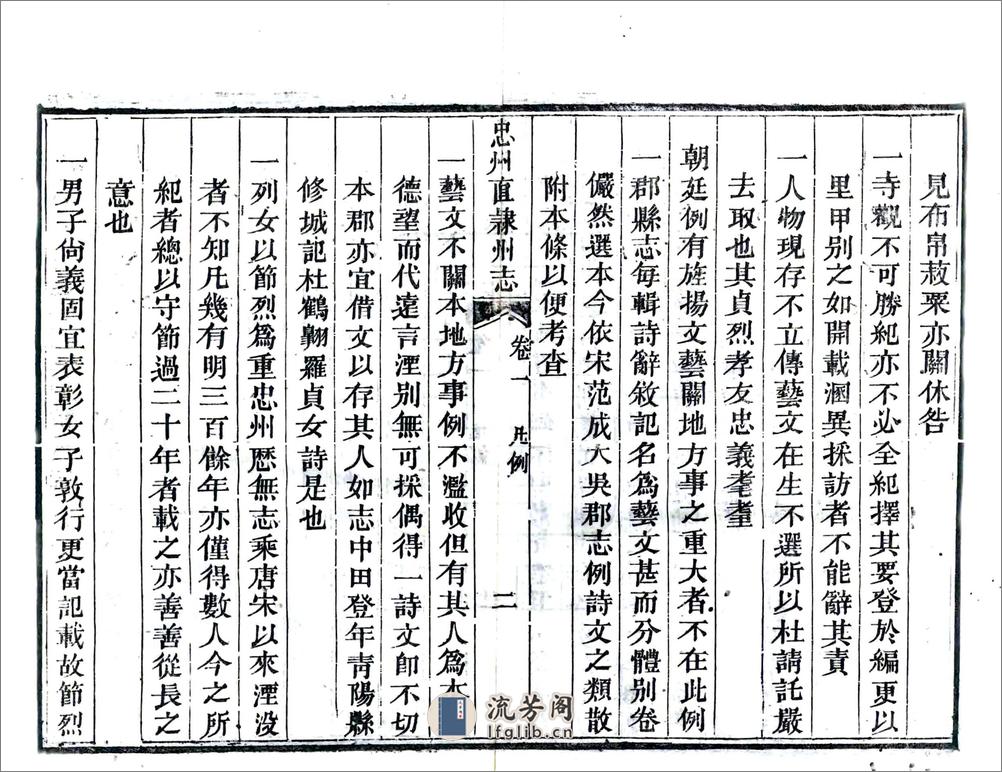 見布帛菽粟亦關休咎
一寺觀不可勝紀亦不必全紀擇其要登於編更以
里甲别之如開載溷異採訪者不能辭其責
一人物現存不立傳藝文在生不選所以杜請託嚴
去取也其貞烈孝友忠義耄耋
朝廷例有旌揚文藝關地方事之重大者不在此例
一郡縣志每輯詩辭敘記名爲藝文甚而分體别卷
儼然選本今依宋范成大吳郡志例詩文之類散
附本條以便考查
忠州直隸州志 卷一 凡例 二
一藝文不關本地方事例不濫收但有其人爲本
德望而代遠言湮别無可採偶得一詩文卽不切
本郡亦宜借文以存其人如志中田登年靑陽縣
修城記杜鶴翺羅貞女詩是也
一列女以節烈爲重忠州歷無志乘唐宋以來湮沒
者不知凡幾有明三百餘年亦僅得數人今之所
紀者總以守節過二十年者載之亦善善從長之
意也
一男子尙義固宜表彰女子敦行更當記載故節烈
流芳阁
lfglib.cn